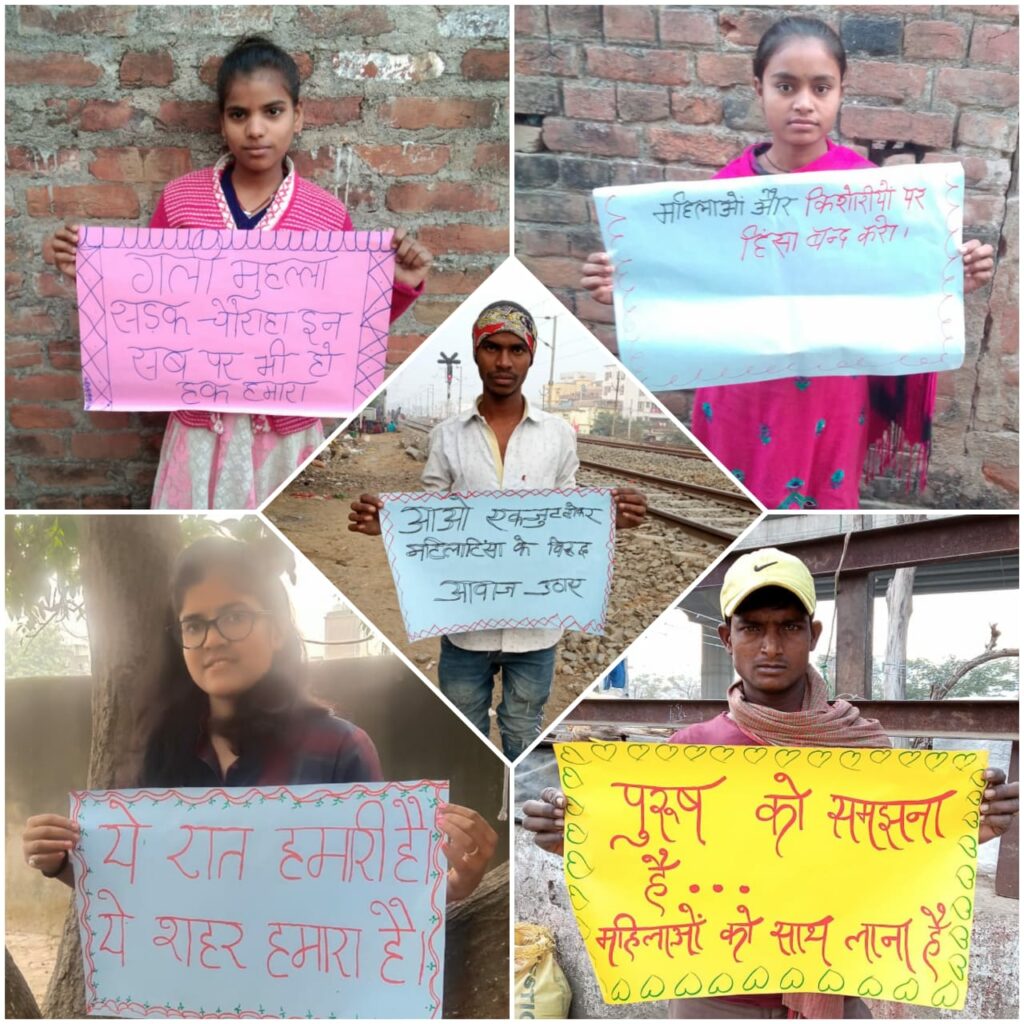 गली मुहल्ला
सड़क-चौराहा इन
सब पर भी हो
हक हमारा
महिलाओं और किशोरीयों पर
हिंसा बन्द करो।
आओ एकजुट होकर
महिलाहिंसा के विरूद्ध
आवाज उठाए
ये रात हमारी है।
ये शहर हमारा है।
पुरूष को समझना
है...
महिलाओं को साथ लाना है